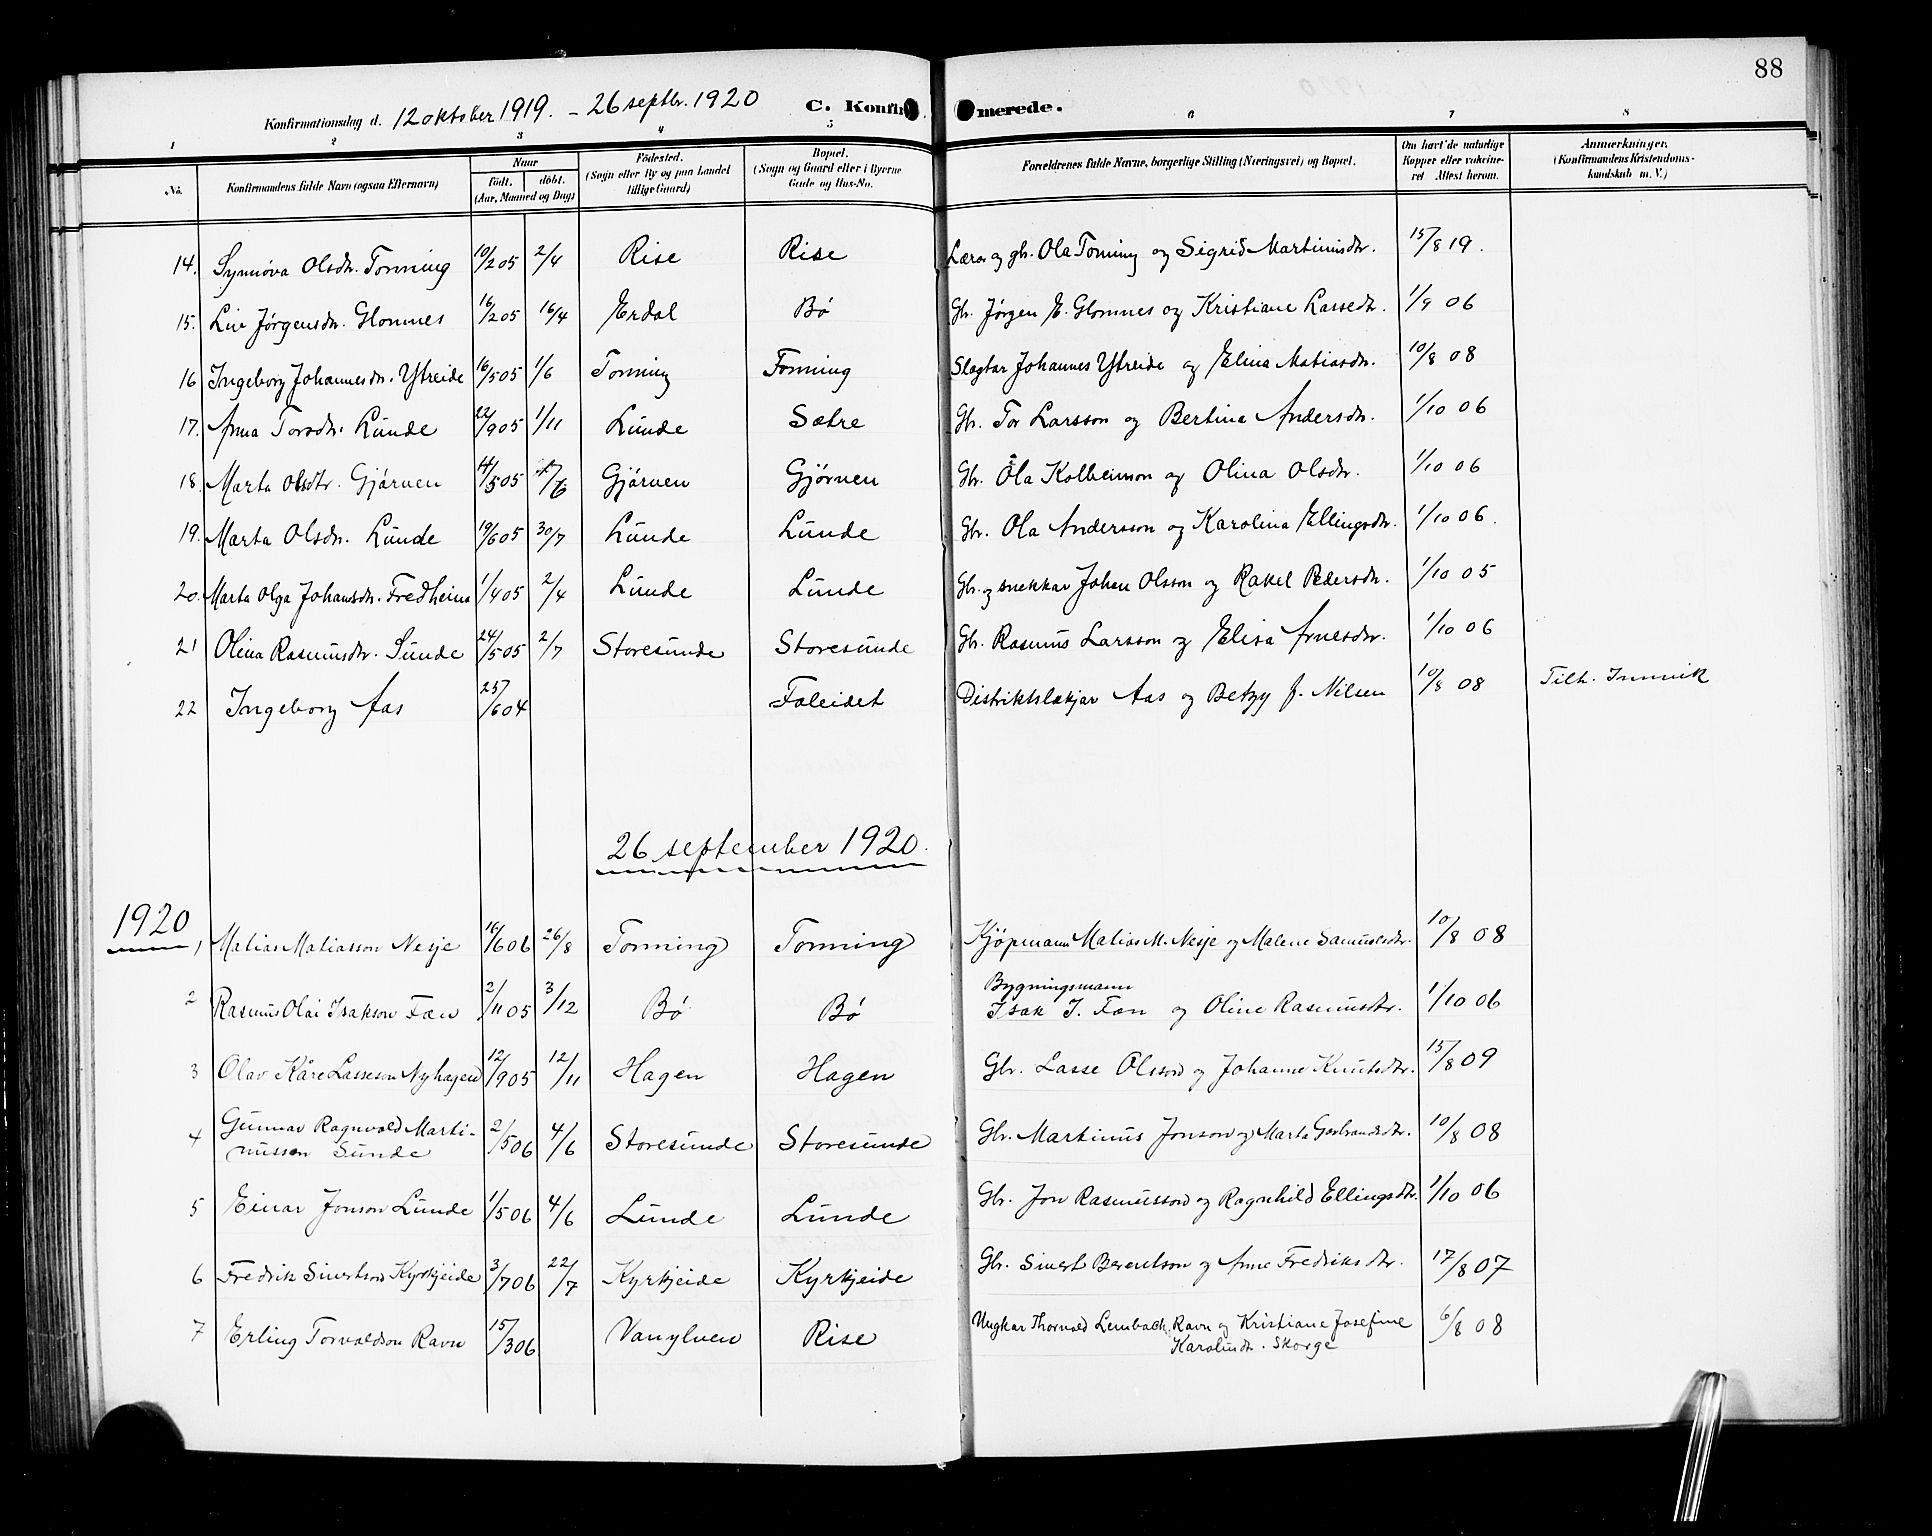 88
Konfirmationsdag d. 12 oktober 1919. – 26 septbr. 1920 C. Konfir merede.
1 2 3 4 5 6 7 8
No. Konfirmandens fulde Navn (ogsaa Efternavn) Naar født. døbt. (Aar, Maaned og Dag) Fødested. (Sogn eller By og paa Landet tillige Gaard) Bopæl. (Sogn og Gaard eller i Byerne Gade og Hus-No. Forældrenes fulde Navne, borgerlige Stilling (Næringsvei) og Bopæl. Om havt de naturlige Kopper eller vaccineret Attest herom. Anmærkninger. (Konfirmandens Kristendomskundskab m. V.)
14. Synnøva Olsdtr. Tonning 19/2 05 2/4 Rise Rise Lærar og gb. Ola Tonning og Sigrid Martinusdtr. 15/8 19.
15. Liv Jørgensdtr. Glomnes 16/2 05 16/4 Erdal Bø Gb. Jørgen E. Glomnes og Kristiane Lassedtr. 1/9 06
16 Ingeborg Johannesdtr. Ytreide 16/5 05 1/6 Tonning Tonning Slagtar Johannes Ytreide og Elina Matiasdtr. 10/8 08
17. Anna Torsdtr. Lunde 22/9 05 1/11 Lunde Sætre Gb. Tor Larsson og Bertina Andersdtr. 1/10 06
18. Marta Olsdtr. Gjørven 14/5 05 /6 Gjørven Gjørven Gb. Ola Kolbeinson og Olina Olsdtr. 1/10 06
19. Marta Olsdtr. Lunde 19/6 05 30/7 Lunde Lunde Gb. Ola Andersson og Karolina Ellingsdtr. 1/10 06.
20. Marta Olga Johansdtr. Fredheim 1/4 05 2/4 Lunde Lunde Gb. og snekkar Johan Olsson og Rakel Pedersdtr. 1/10 05
21 Olina Rasmusdtr. Sunde 24/5 05 2/7 Storesunde Storesunde Gb. Rasmus Larsson og Elisa Arnesdtr. 1/10 06
22 Ingeborg Aas 25/6 04 Faleidet Distriktslækjar Aas og Betzy f. Nilsen 10/8 08 Tilh. Innvik
26 september 1920.
1920
1 Matias Matiasson Nesje 16/6 06 26/8 Tonning Tonning Kjøpmann Matias M. Nesje og Malene Samuelsdtr. 10/8 08
2 Rasmus Olai Isakson Fæn 2/11 05 3/12 Bø Bø Bygningsmann Isak J. Fæn og Oline Rasmusdtr. 1/10 06
3 Olav Kåre Lasseson Nyhagen 12/9 05 12/11 Hagen Hagen Gb. Lasse Olsson og Johanne Knutsdtr. 15/8 09
4 Gunnar Ragnvald Marti-
nusson Sunde 2/5 06 4/6 Storesunde Storesunde Gb. Martinus Jonson og Marta Gerbrandsdtr. 10/8 08
5 Einar Jonson Lunde 1/5 06 4/6 Lunde Lunde Gb. Jon Rasmusson og Ragnhild Ellingsdtr. 1/10 06
6 Fredrik Sivertson Kyrkjeide 3/7 06 22/7 Kyrkjeide Kyrkjeide Gb. Sivert Berentson og Anne Fredriksdtr. 17/8 07
7 Erling Torvaldson Ravn 15/3 06 Vanylven Rise Ungkar Thorvald Lembach Ravn og Kristiane Josefine
Karolusdtr. Skorge 6/8 08